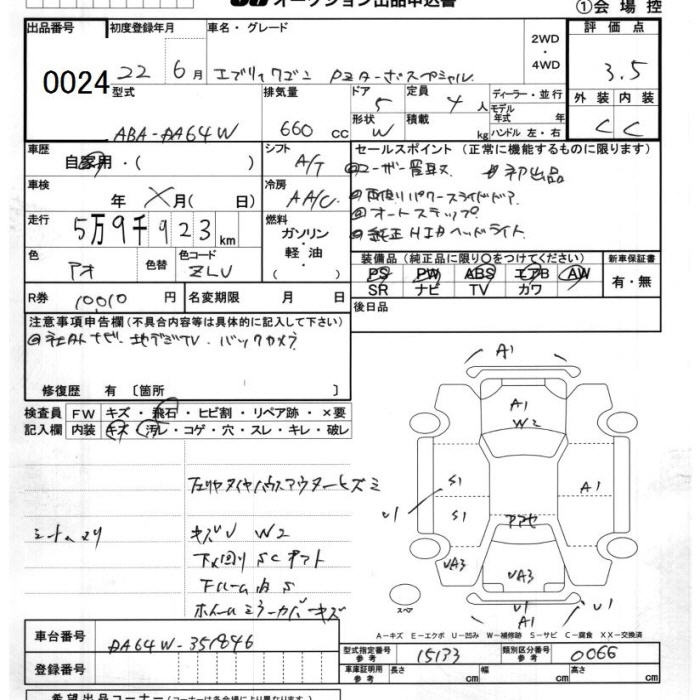 オークション出品申込書
①会場控
出品番号 初度登録年月 車名・グレード 2WD・4WD 評価点
0024 22 6月 エブリィワゴン PZターボスペシャル 3.5
型式 排気量 ドア 5 定員 4人 ディーラー・並行 外装 内装
ABA-DA64W 660cc 形状 W 積載 kg モデル年式 年式 ハンドル 左・右 C C
車歴 シフト セールスポイント(正常に機能するものに限ります)
自家用・( ) A/T @ユーザー買取 初出品
車検 冷房 @両側パワースライドドア
年 X月( 日) AAC @オートステップ
走行 燃料 @純正HIDヘッドライト
5万9千923km ガソリン・軽油( )
色 色替 色コード 装備品(純正品に限り○をつけてください) 新車保証書
アオ ZLU PS PW ABS エアB AW 有・無
SR ナビ TV カワ
R券 10010円 名変期限 月 日 後日品
注意事項申告欄(不具合内容等は具体的に記入して下さい)
@社外ナビ.地デジTV.バックカメラ
修復歴 有〔箇所 〕
検査員 FW キズ・飛石・ヒビ割・リペア跡・×要
記入欄 内装 キズ・汚レ・コゲ・穴・スレ・キレ・破レ
A1
A1
W2
S1 A1
U1 S1
UA3 UA3 UA3
スペア U1 A1 U1
キズU W2
下廻りSC
ホイールミラーカバーキズ
A-キズ E-エクボ U-凹み W-補修跡 S-サビ C-腐食 XX-交換済
車台番号 DA64W-351846
型式指定番号 参考 15173 類別区分番号 参考 0066
登録番号 車庫証明用 参考 長さ cm 幅 cm 高さ cm
希望出品コーナー